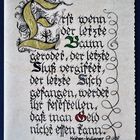 Erst wenn
der letzte
Baum
gerodet, der letzte
Fluß vergiftet,
der letzte Fisch
gefangen, werdet
ihr feststellen,
daß man Geld
nicht essen kann.